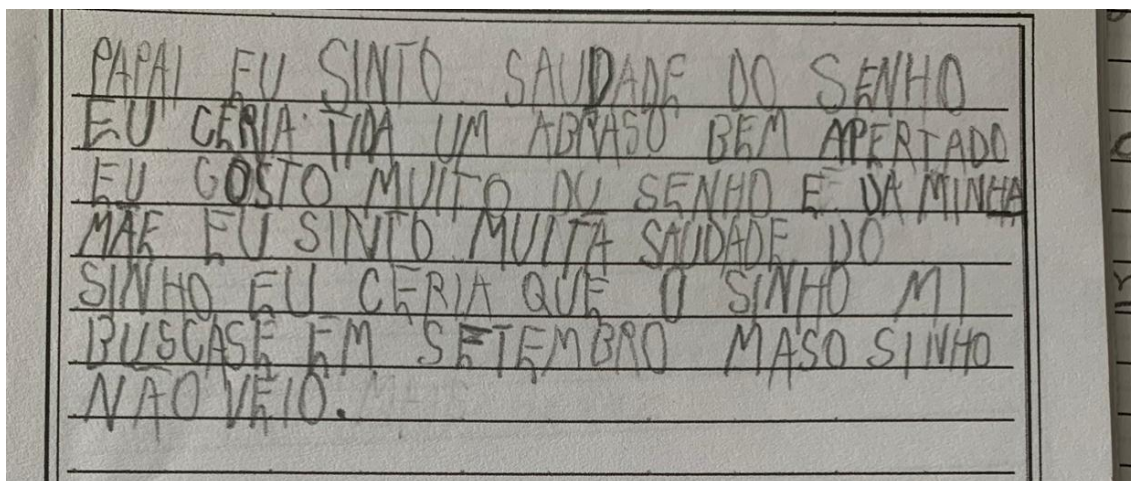 PAPAI EU SINTO SAUDADE DO SENHO
EU CERIA TIDA UM ABRASO BEM APERTADO
EU GOSTO MUITO DO SENHO E DA MINHA
MÃE EU SINTO MUITA SAUDADE DO
SINHO EU CERIA QUE O SINHO MI
BUSCASE EM SETEMBRO MASO SINHO
NÃO VEIO.